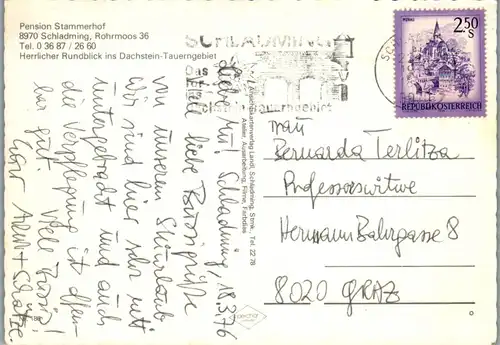 Pension Stammerhof
8970 Schladming, Rohrmoos 36
Tel. 0 36 87 / 26 60
Herrlicher Rundblick ins Dachstein-Tauerngebiet
SCHLADMING
Das
2.50
S
MURAU
REPUBLIK ÖSTERREICH
Schladming, 18.3.76
Liebe
liebe Bussigrüße
von unserem Skiurlaub
Wir sind hier sehr nett
untergebracht und auch
die Verpflegung ist
gut. Viele Bussi!
Frau
Bernarda Terlitza
Professorswitwe
Hermann Bahrgasse 8
8020 GRAZ
Landl, Schladming, Stmk., Tel. 22 78
Atelier, Ausarbeitung, Filme, Farbdias